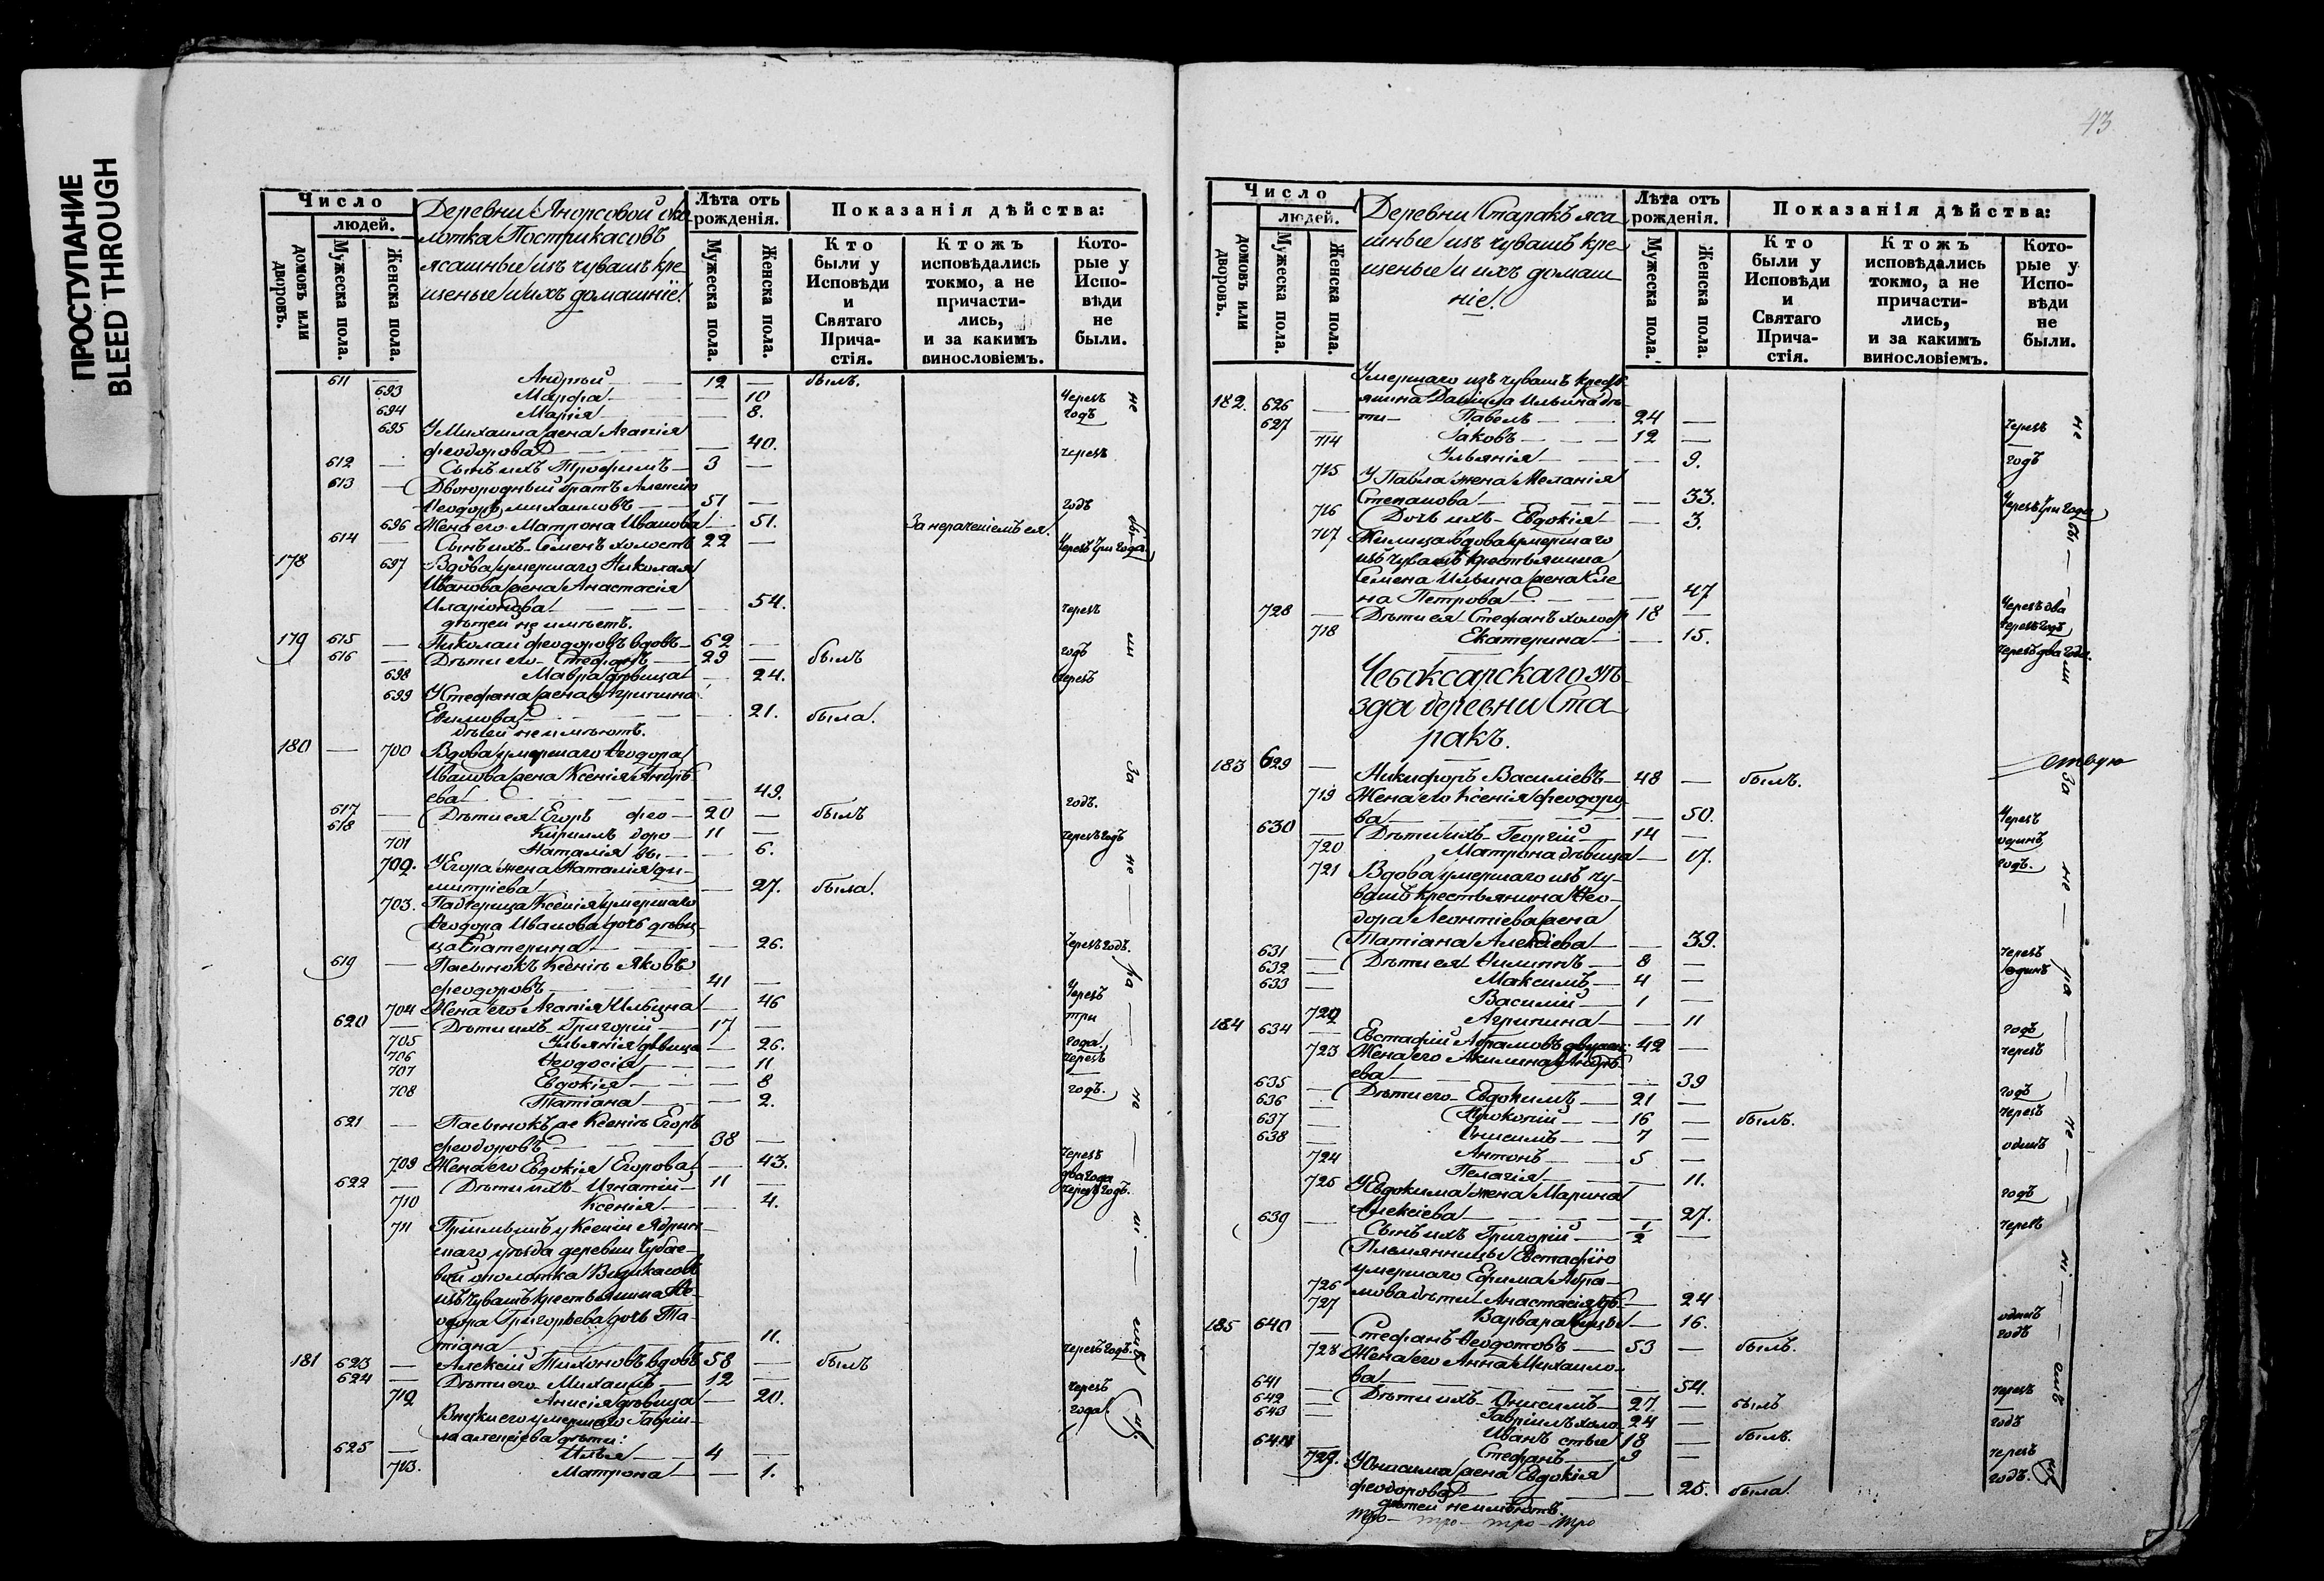 ПРОСТУПАНИЕ
BLEED THROUGH
Число
людей.
домовъ или дворовъ.
Мужеска пола.
Женска пола.
Деревни
Пострикасовъ
ясашные изъ чувашъ кре
щеные и ихъ домашніе.
Лѣта отъ рожденія.
Мужеска пола.
Женска пола.
Показанія дѣйства:
Кто были у Исповѣди и Святаго Прича- стія.
Ктожъ исповѣдались токмо, а не причасти- лись, и за какимъ винословіемъ.
Кото- рые у Испо- вѣди не были.
611 — Андрей — 12 — былъ.
693 Марфа — 10 Черезъ
694 Марія — 8. годъ
695 У Михаила жена Агапія
феодорова — 40. черезъ
612 — Сынъ ихъ Трофимъ — 3 —
613 — Двоюродный братъ Алексѣю
Ѳеодоръ Михаиловъ — 51 — годъ
696 Жена его Матрона Иванова — 51. За нераченіемъ ея.
614 — Сынъ ихъ Семенъ холостъ 22 — Черезъ три года
178 697 Вдова умершаго Николая
Иванова жена Анастасія
Иларіонова — 54. черезъ
дѣтей не имѣетъ.
179 615 — Николай феодоровъ вдовъ — 62 — годъ
616 — Дѣти его Стефанъ — 29 — былъ
698 Мавра дѣвица — 24. черезъ
699 У Стефана жена Агрипина
Евимова — 21. была.
дѣтей не имѣютъ.
180 — 700 Вдова умершаго Ѳеодора
Иванова жена Ксенія Андрѣ
ева — 49. годъ.
617 — Дѣти ея Егоръ фео — 20 — былъ
618 — Кириллъ доро — 11 — черезъ годъ
701 Наталія вы — 6.
702. У Егора жена Наталія Ди-
митріева — 27. была.
703. Падчерица Ксенія умершаго
Ѳеодора Иванова дочь дѣви
ца Екатерина — 26. Черезъ годъ.
619 — Пасынокъ Ксеніи Яковъ
феодоровъ — 41 —
704 Жена его Агапія Ильина — 46 Черезъ
620 — Дѣти ихъ Григорій — 17 — три
705 Ульянія дѣвица — 26. года.
706 Ѳеодосія — 11 черезъ
707 Евдокія — 8
708 Татіана — 2. годъ.
621 — Пасынокъ же Ксеніи Егоръ
феодоровъ — 38 —
709 Жена его Евдокія Егорова — 43. черезъ
622 — Дѣти ихъ Игнатій — 11 — два года
710 Ксенія — 4. черезъ годъ.
711 Пріимышъ у Ксеніи Ядрин-
скаго уѣзда деревни Чубае-
вой околотка
изъ чувашъ крестьянина Ѳе-
одора Григорьева дочь Та-
тіана — 11. черезъ годъ.
181 623 — Алексій Тихоновъ вдовъ 58 — былъ
624 — Дѣти его Михаилъ — 12 — черезъ
712 Анисія дѣвица — 20. года.
Внуки его умершаго Гаврiи-
ла Алексіева дѣти:
625 — Илья — 4 —
713. Матрона — 1.
43
Число
людей.
домовъ или дворовъ.
Мужеска пола.
Женска пола.
Деревни Старакъ яса
шные изъ чувашъ кре
щеные и ихъ домаш
ніе.
Лѣта отъ рожденія.
Мужеска пола.
Женска пола.
Показанія дѣйства:
Кто были у Исповѣди и Святаго Прича- стія.
Ктожъ исповѣдались токмо, а не причасти- лись, и за какимъ винословіемъ.
Кото- рые у Испо- вѣди не были.
Умершаго изъ чувашъ кресть
182. 626 — янина Даніила Ильина дѣ
627 ти — Павелъ — 24 — черезъ
— Іаковъ — 12 —
714 Ульянія — 9. годъ
715 У Павла жена Меланія
Степанова — 33. Черезъ три года
716 Дочь ихъ Евдокія — 3.
717 Жилица вдова умершаго
изъ чувашъ крестьянина
Семена Ильина жена Еле
на Петрова — 47 Черезъ два
728 — Дѣти ея Стефанъ холост 18 — черезъ годъ
718 Екатерина — 15. черезъ два года.
Чебоксарскаго уѣ-
зда деревни Ста
ракъ.
183 629 — Никифоръ Василіевъ — 48 — былъ.
719 Жена его Ксенія феодоро
ва — 50. Черезъ
630 — Дѣти ихъ Георгій — 14 — одинъ
720 Матрона дѣвица — 17. годъ.
721 Вдова умершаго изъ чу-
вашъ крестьянина Ѳео-
дора Леонтіева жена
Татіана Алексіева — 39. черезъ
631 — Дѣти ея Филиппъ — 8 — одинъ
632 — Максимъ — 4 —
633 — Василій — 1 —
722 Агрипина — 11 годъ
184 634 — Евстафій Абрамовъ 42 — черезъ
723 Жена его Акилина Андрѣ
ева — 39 годъ
635 — Дѣти его Евдокимъ — 21 — черезъ
636 — Прокопій — 16 — былъ.
637 — Онисимъ — 7 — одинъ
638 — Антонъ — 5 —
724 Пелагія — 11. годъ
725 У Евдокима жена Марина
Алексіева — 27. черезъ
639 — Сынъ ихъ Григорій — 1/2 —
Племянницы Евстафію
умершаго Ефима Абра-
726 мова дѣти Анастасія дѣ — 24
727 Варвара вицы — 16. одинъ
185 640 — Стефанъ Ѳеодотовъ — 53 — былъ. годъ
728 Жена его Анна Михаило-
ва — 54. черезъ
641 — Дѣти ихъ Онисимъ — 27 — былъ
642 — Гавріилъ холо 24 — годъ
643 — Иванъ стые 18 — былъ.
644 — Стефанъ — 9 — черезъ
729. У Онисима жена Евдокія годъ.
феодорова — 25. была.
дѣтей не имѣютъ.
тро — тро — тро — тро